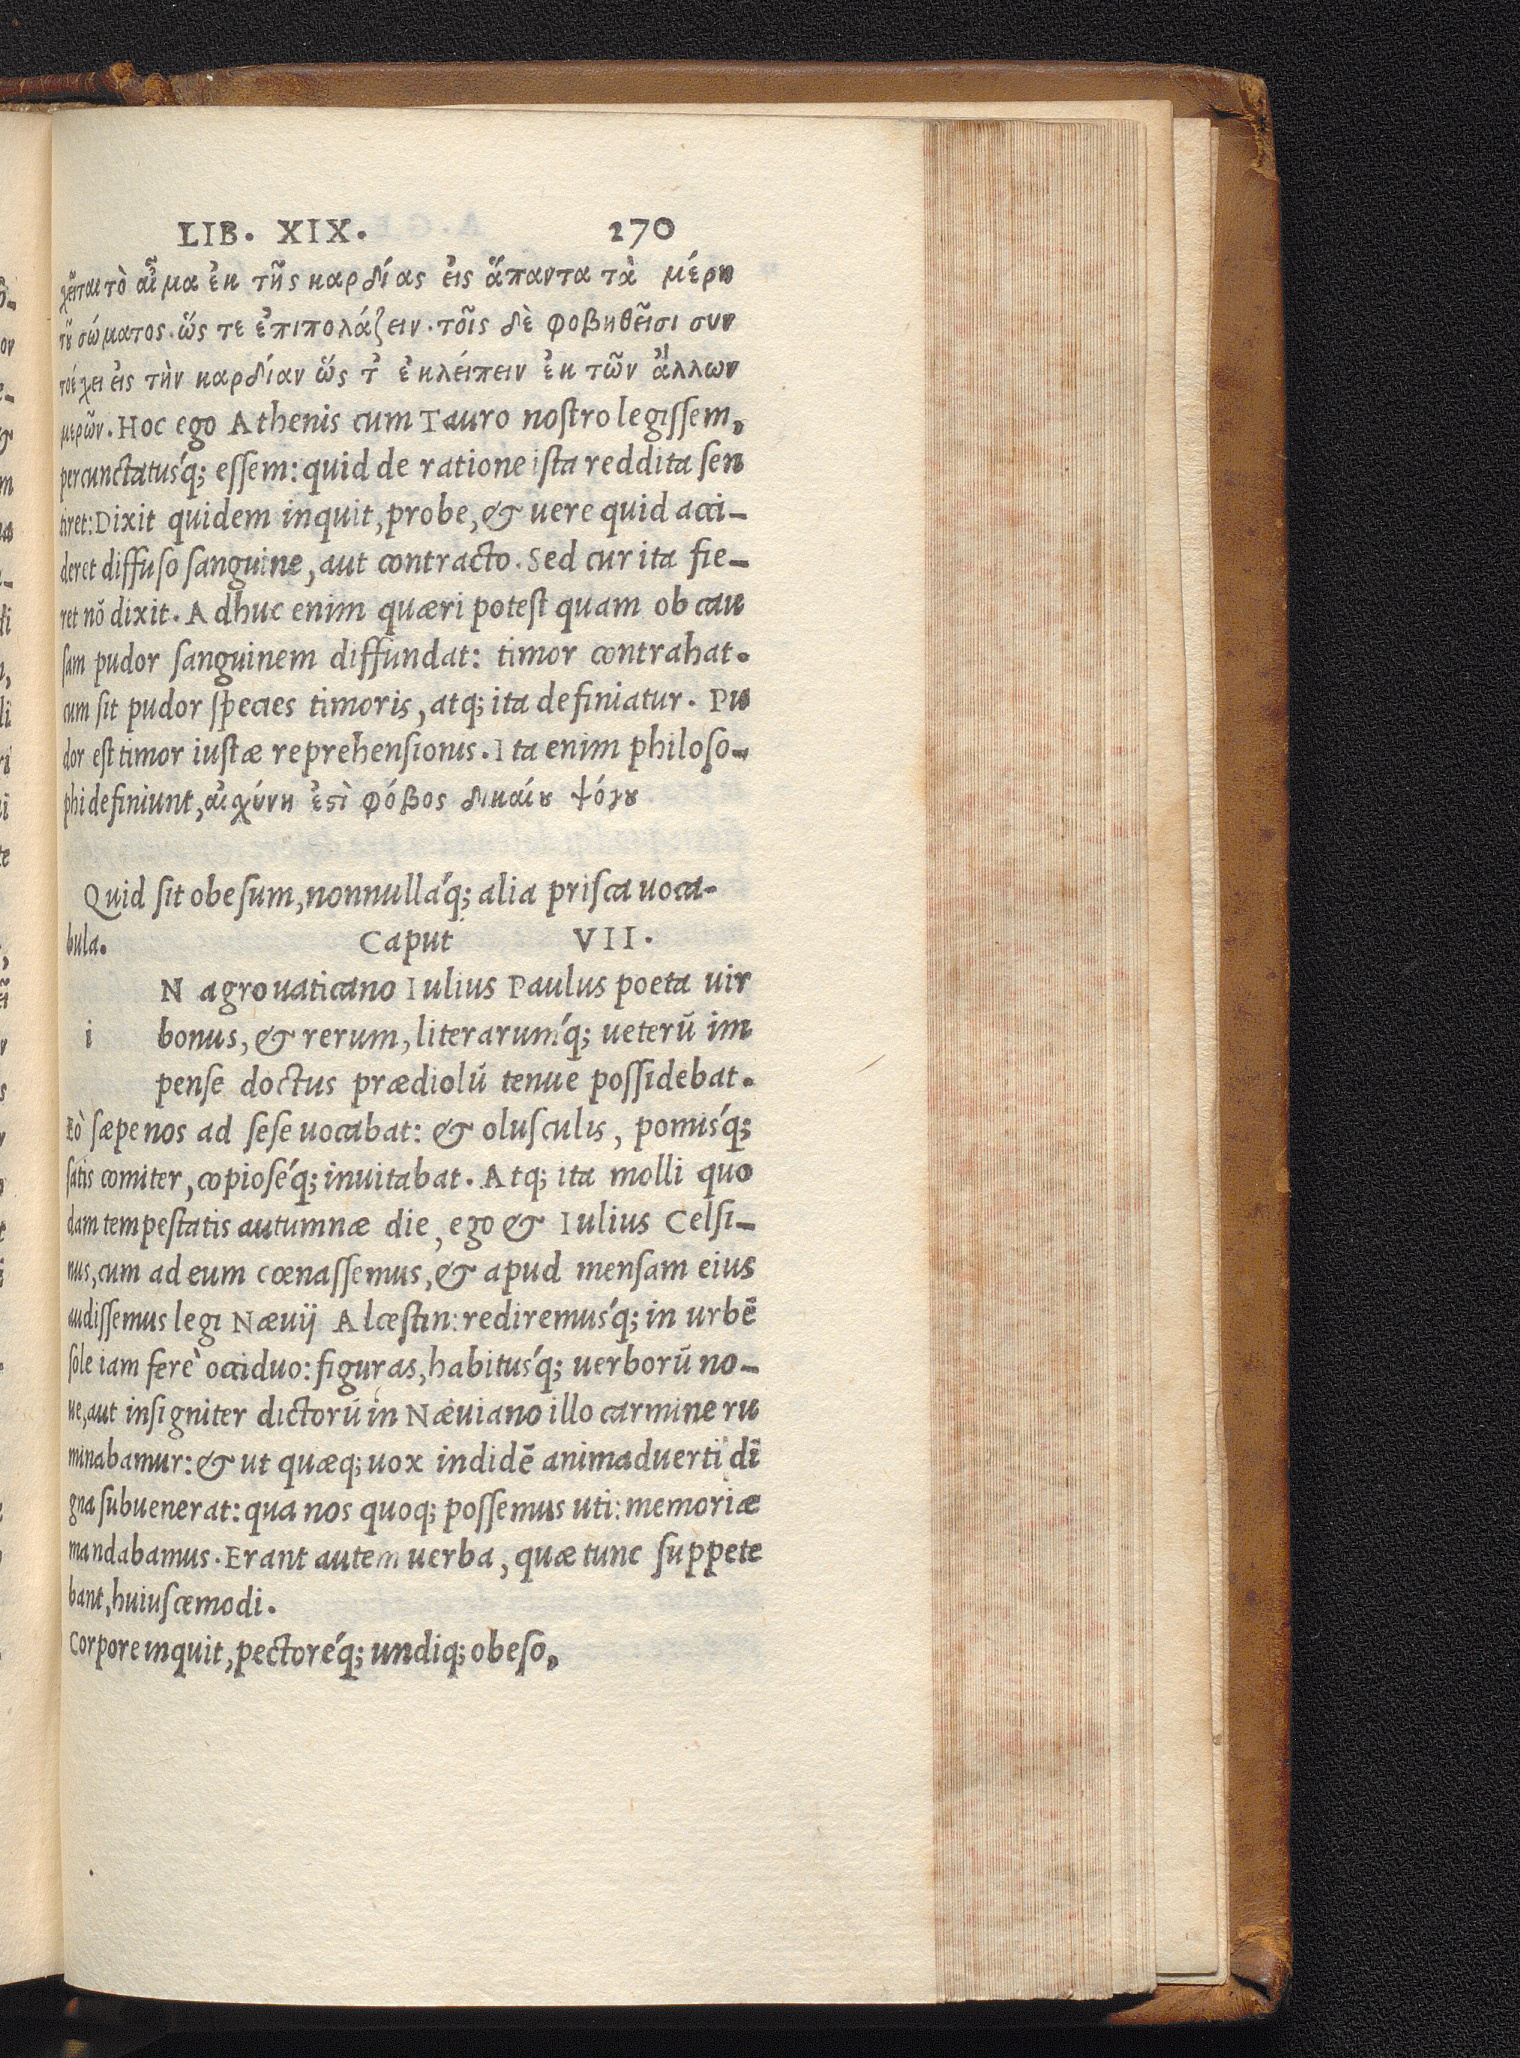 LIB. XIX. 270
χεῖται τὸ αἷμα ἐκ τῆς καρδίας εἰς ἅπαντα τὰ μέρη
τȣ͂ σώματος. ὥς τε ἐπιπολάζειν. τοῖς δὲ φοβηθεῖσι συν
τρέχει εἰς τὴν καρδίαν ὥς τ' ἐκλείπειν ἐκ τῶν ἄλλων
μερῶν. Hoc ego Athenis cum Tauro noſtro legiſſem,
percunctatusq́; eſſem: quid de ratione iſta reddita ſen
tiret: Dixit quidem inquit, probe, & uere quid acci-
deret diffuſo ſanguine, aut contracto. Sed cur ita fie-
ret nō dixit. Adhuc enim quæri poteſt quam ob cau
ſam pudor ſanguinem diffundat: timor contrahat.
cum ſit pudor ſpecies timoris, atq; ita definiatur. Pu
dor eſt timor iuſtæ reprehenſionis. Ita enim philoſo-
phi definiunt, αἰχύνη ἐϛὶ φόβος δικαίȣ ψόγȣ
Quid ſit obeſum, nonnullaq́; alia priſca uoca-
bula. Caput VII.
N agro uaticano Iulius Paulus poeta uir
i bonus, & rerum, literarumq́; ueterū im
penſe doctus prædiolū tenue poſſidebat.
Eò ſæpe nos ad ſeſe uocabat: & oluſculis, pomisq́;
ſatis comiter, copioſeq́; inuitabat. Atq; ita molli quo
dam tempeſtatis autumnæ die, ego & Iulius Celſi-
nus, cum ad eum cœnaſſemus, & apud menſam eius
audiſſemus legi Næuij Alceſtin: rediremusq́; in urbē
ſole iam ferè occiduo: figuras, habitusq́; uerborū no-
ue, aut inſigniter dictorū in Næuiano illo carmine ru
minabamur: & ut quæq; uox indidē animaduerti dī
gna ſubuenerat: qua nos quoq; poſſemus uti: memoriæ
mandabamus. Erant autem uerba, quæ tunc ſuppete
bant, huiuſcemodi.
Corpore inquit, pectoreq́; undiq; obeſo,